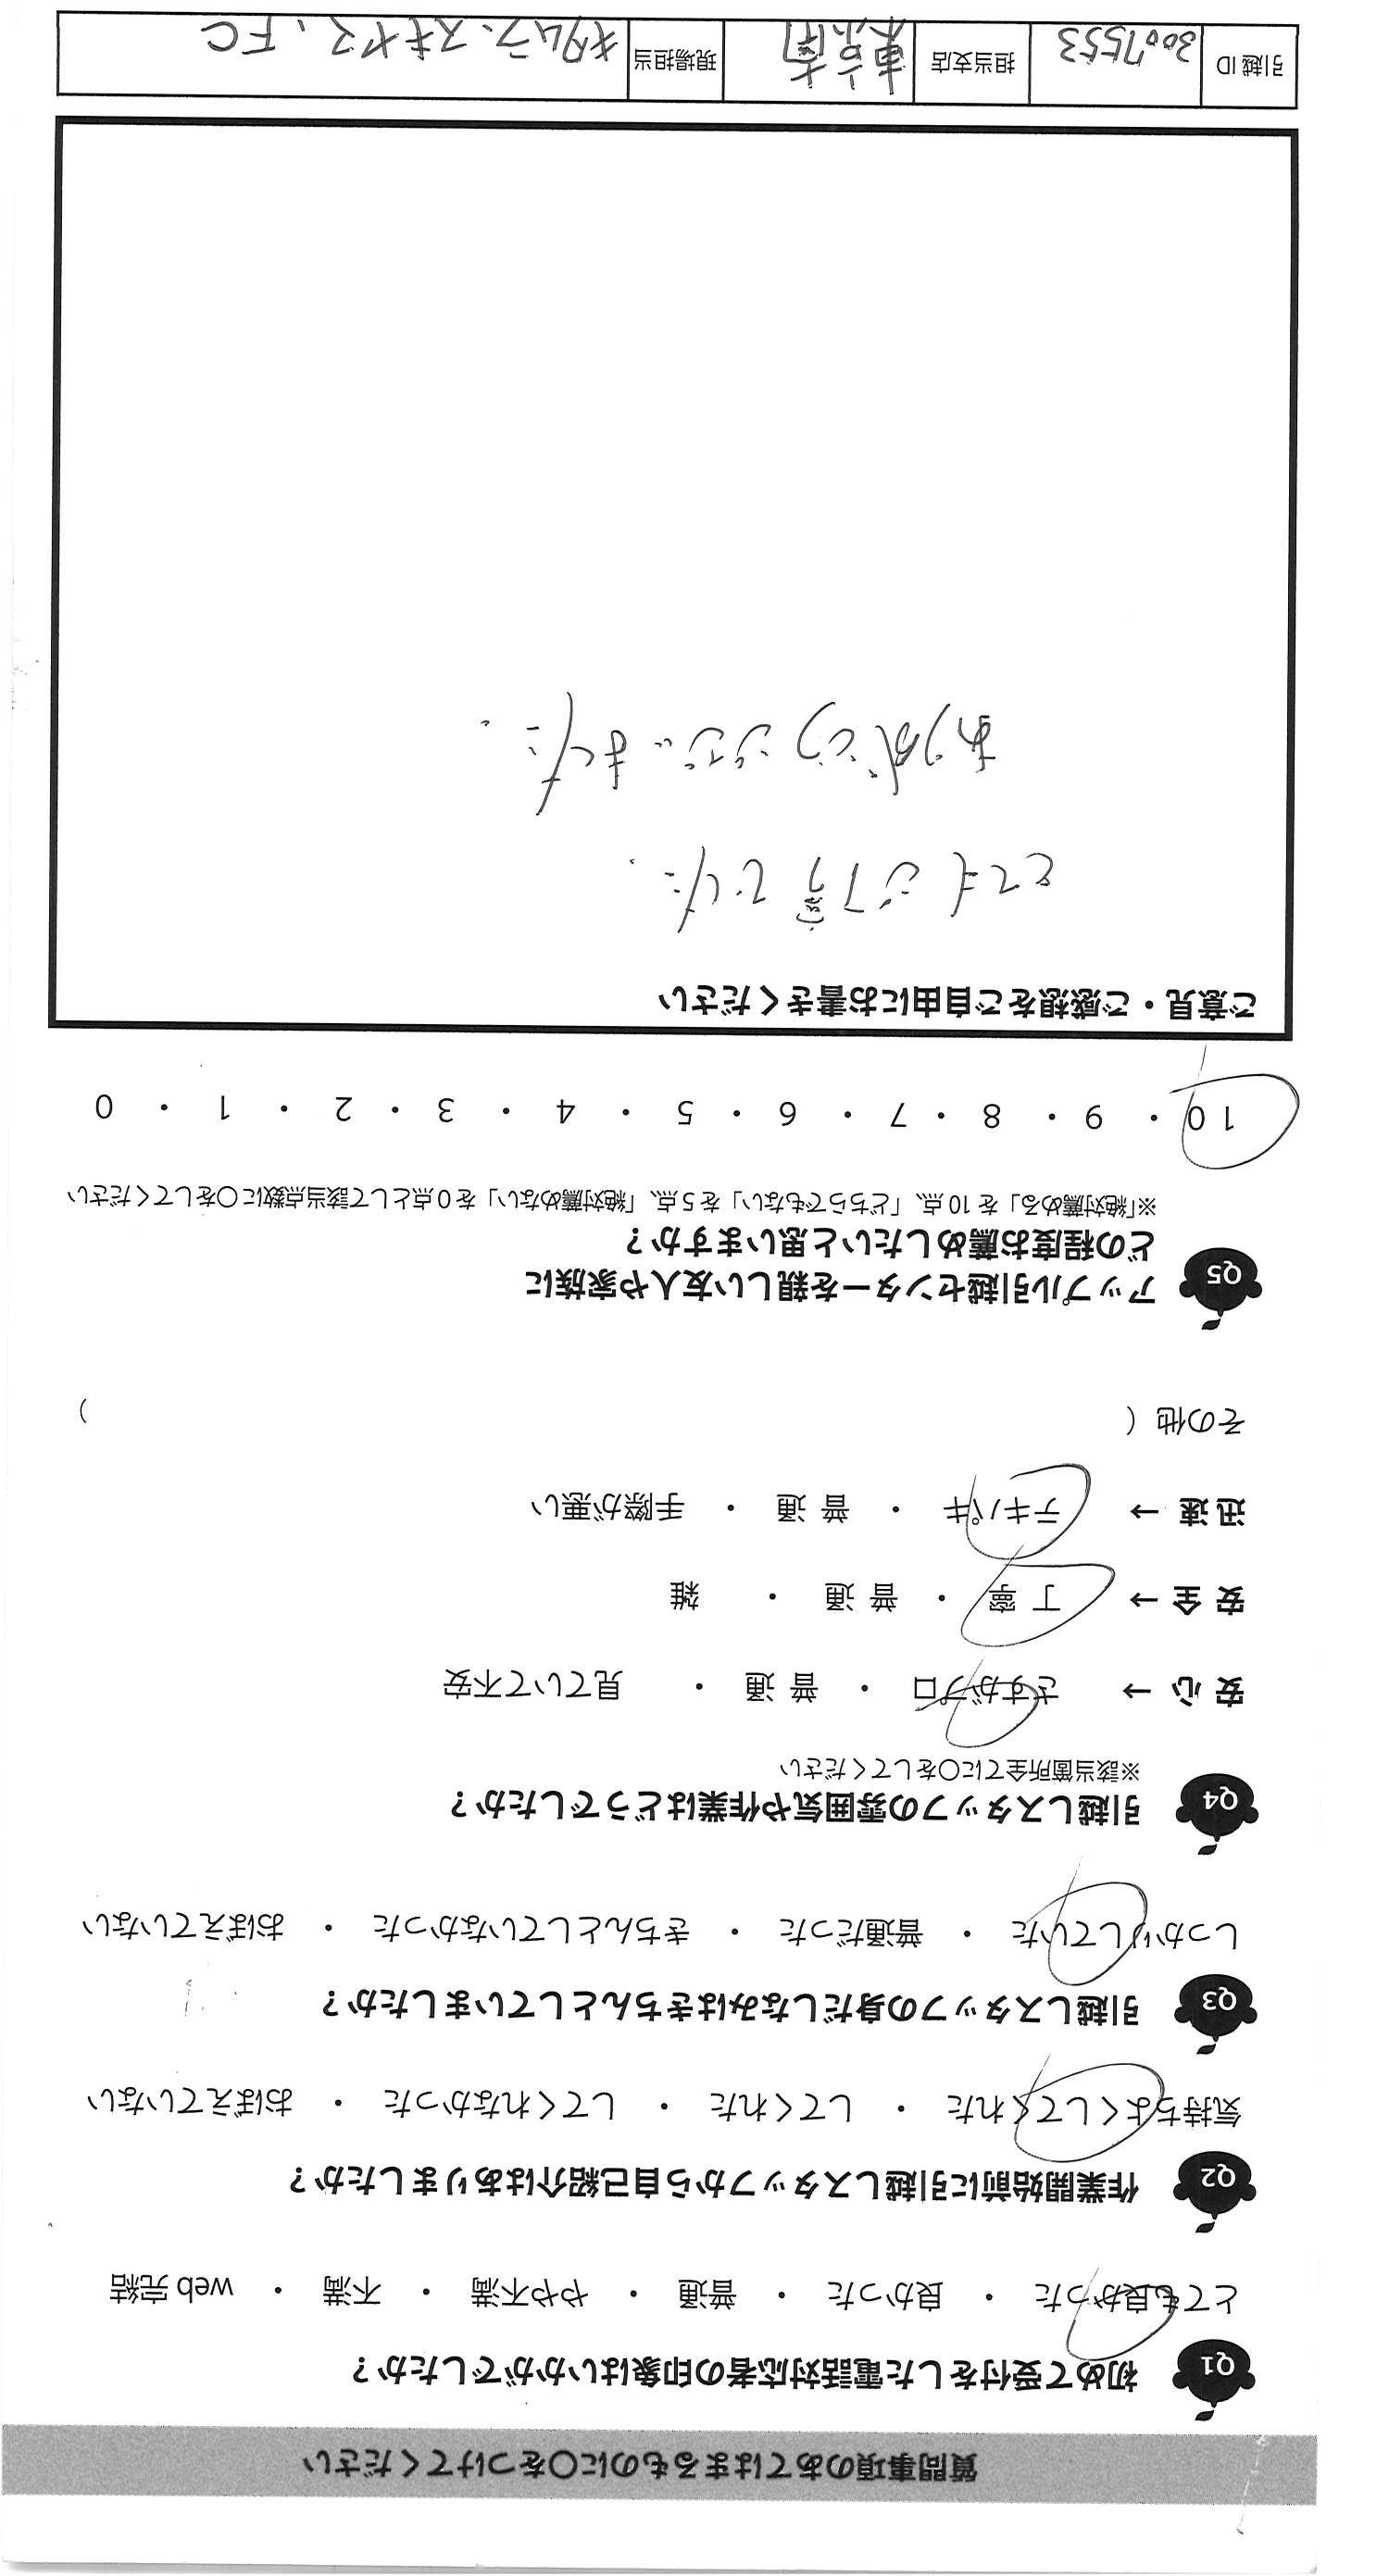 質問事項のあてはまるものに○をつけてください
Q1 初めて受付をした電話対応者の印象はいかがでしたか？
とても良かった ・ 良かった ・ 普通 ・ やや不満 ・ 不満 ・ web 完結
Q2 作業開始前に引越しスタッフから自己紹介はありましたか？
気持ちよくしてくれた ・ してくれた ・ してくれなかった ・ おぼえていない
Q3 引越しスタッフの身だしなみはきちんとしていましたか？
しっかりしていた ・ 普通だった ・ きちんとしていなかった ・ おぼえていない
Q4 引越しスタッフの雰囲気や作業はどうでしたか？
※該当箇所全てに○をしてください
安 心 → さすがプロ ・ 普 通 ・ 見ていて不安
安 全 → 丁 寧 ・ 普 通 ・ 雑
迅 速 → テキパキ ・ 普 通 ・ 手際が悪い
その他（ ）
Q5 アップル引越センターを親しい友人や家族に
どの程度お薦めしたいと思いますか？
※「絶対薦める」を 10 点、「どちらでもない」を 5 点、「絶対薦めない」を 0 点として該当点数に○をしてください
10 ・ 9 ・ 8 ・ 7 ・ 6 ・ 5 ・ 4 ・ 3 ・ 2 ・ 1 ・ 0
ご意見・ご感想をご自由にお書きください
とてもご丁寧でした.
ありがとうございました.
引越 ID 3007553 担当支店 東京南 現場担当 キタムラ、スギヤマ、FC